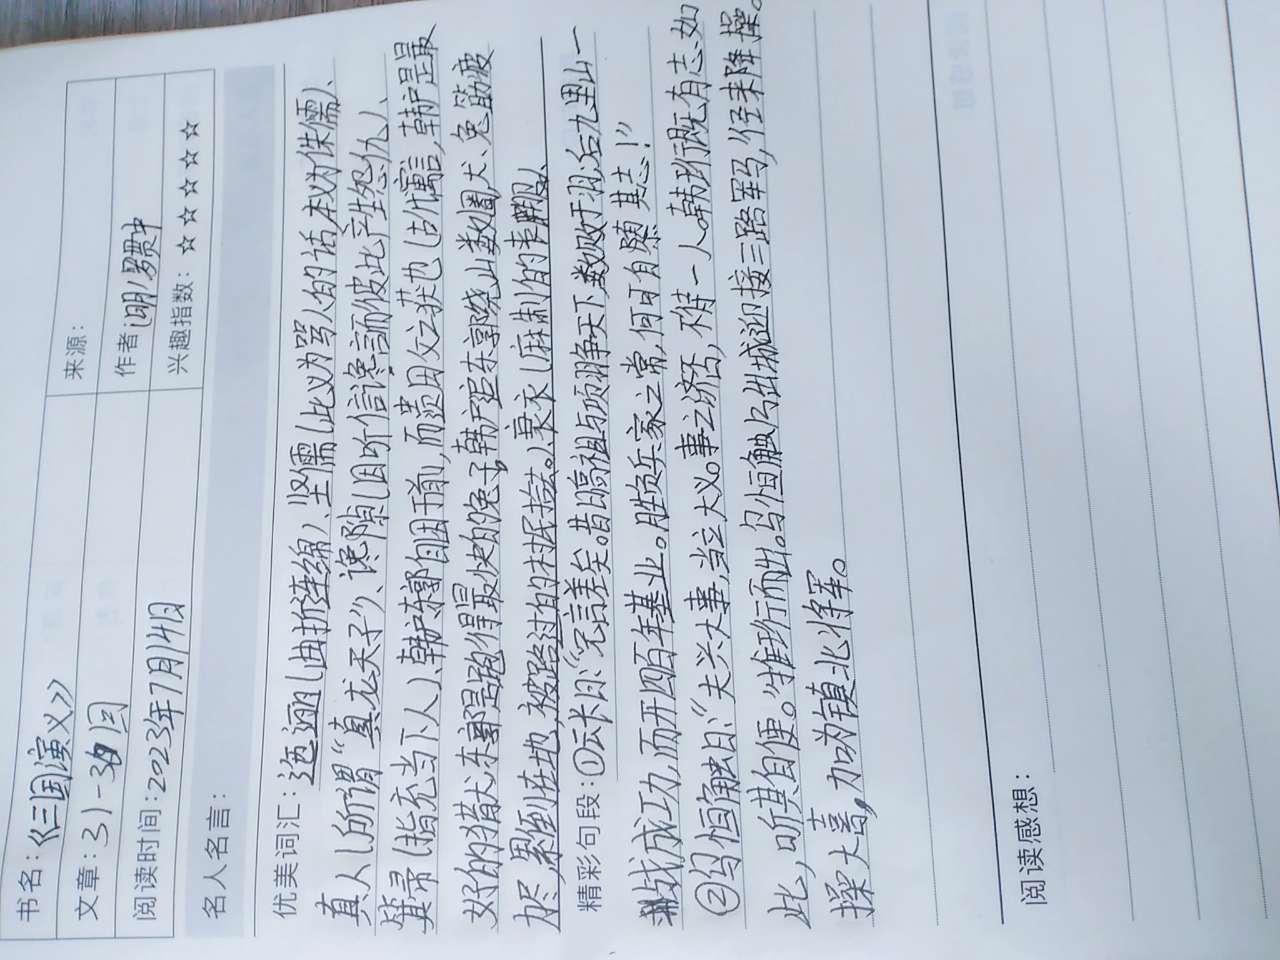 书名：《三国演义》
来源：
文章：31-3回
作者：明/罗贯中
阅读时间：2023年7月14日
兴趣指数：☆☆☆☆☆
名人名言：
优美词汇：迤逦（曲折连绵）、竖儒（此义为骂人的话本义为侏儒）、
真人（所谓“真龙天子”）、谗隙（因听信谗言而彼此产生怨仇）、
箕帚（指充当下人）、韩卢东郭自困于前，而遗田父之获也（古代寓言，韩卢是最
好的猎犬东郭是跑得最快的兔子，韩卢追东郭绕山数圈犬、兔筋疲
力尽，累倒在地，被路过的村民捡去。）、衰衣（麻制的丧服）、
精彩句段：①云长曰：“兄言差矣。昔日高祖与项羽争天下，数败于羽；后九里山一
战成功，而开四百年基业。胜负兵家之常，何可自隳其志！”
②乌恒触曰：“夫兴大事，当立大义。事之济否，不待一人。韩珩既有志如
此，听其自便。”推珩而出。乌恒触乃出城迎接三路军马，径来降操。
操大喜，加为镇北将军。
阅读感想：